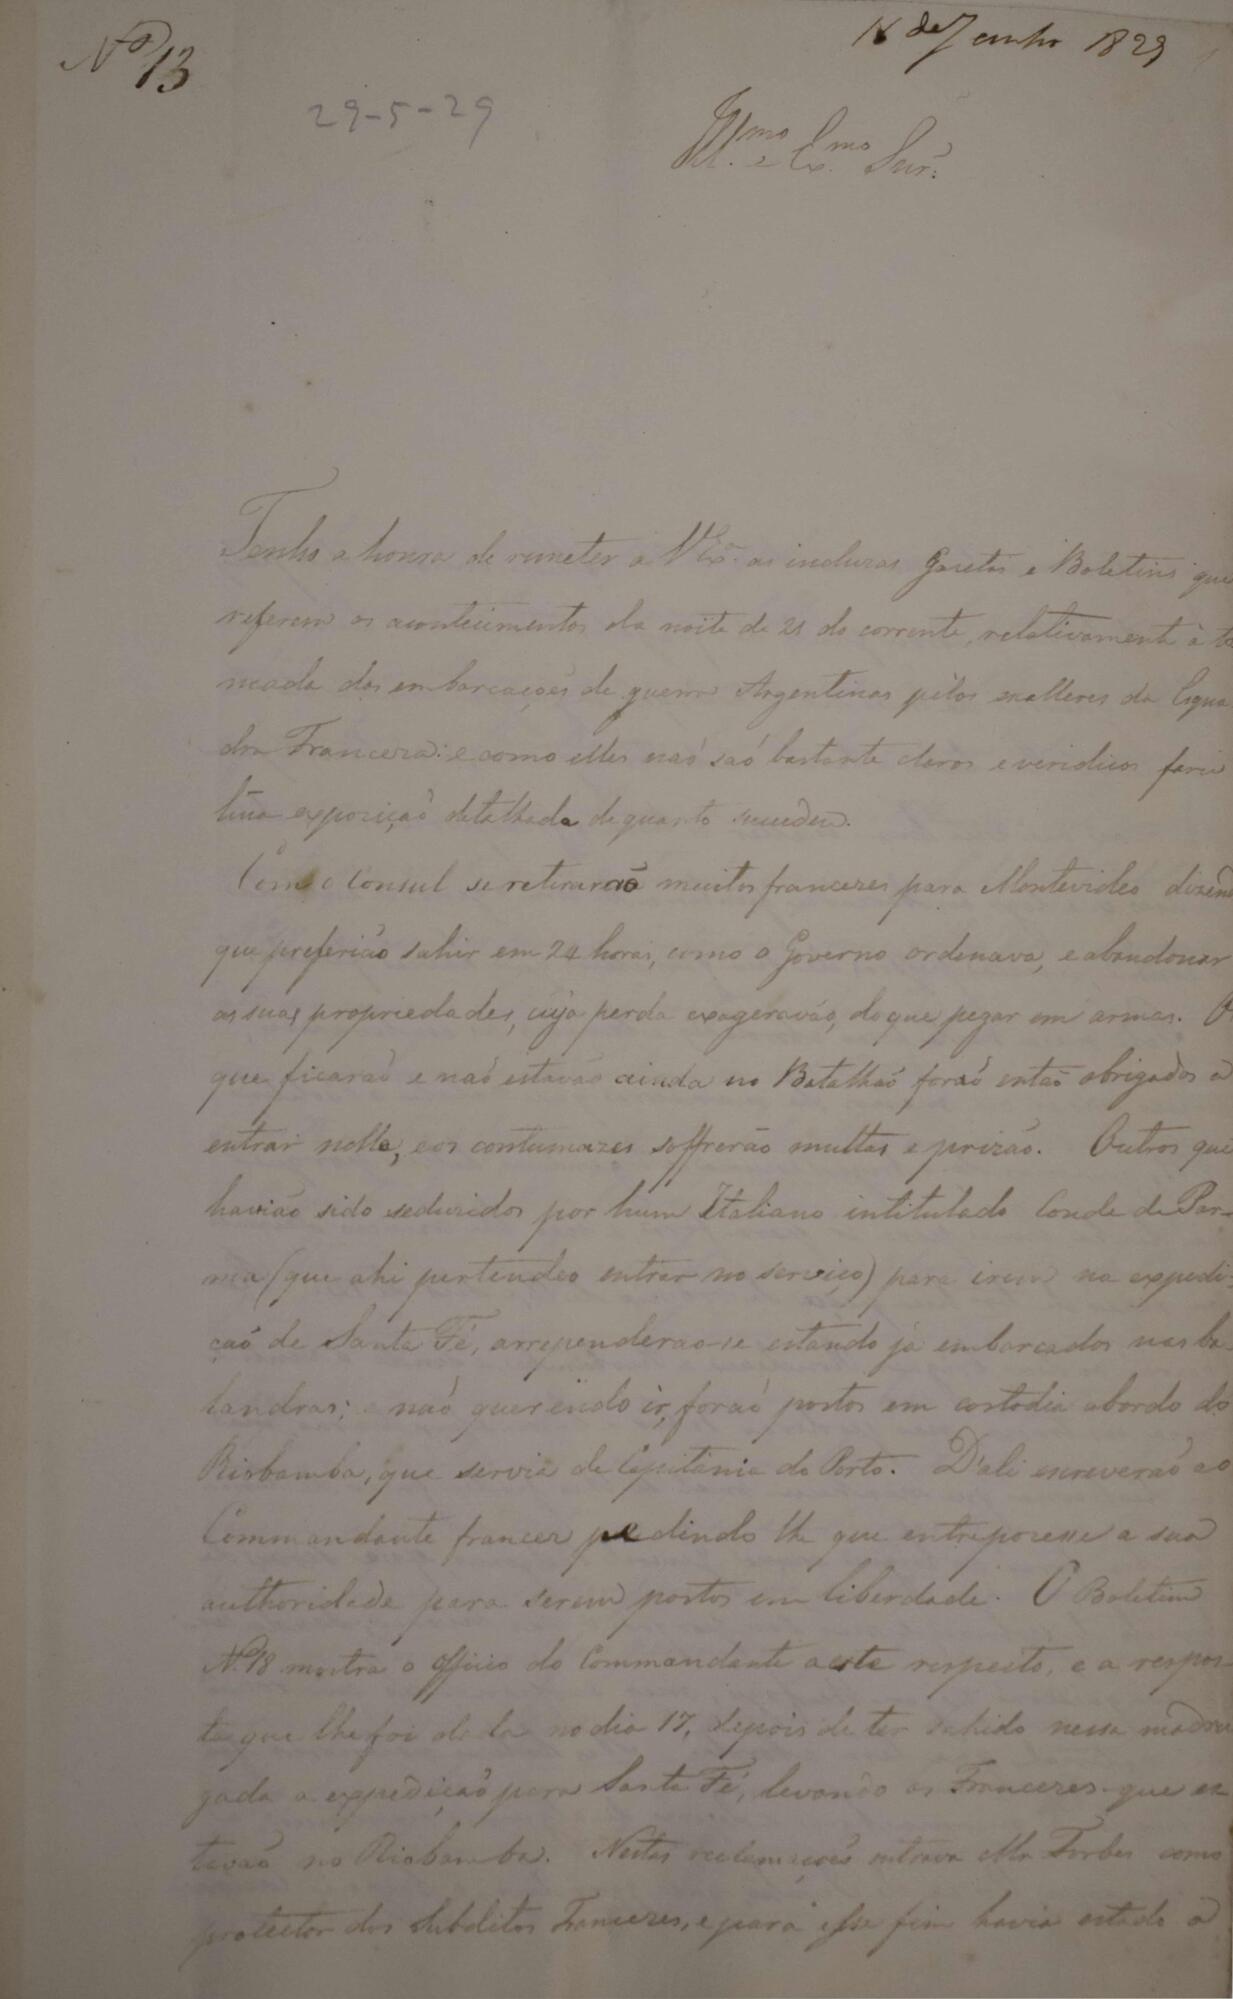 Nº 13
16 de Junho 1829
29-5-29
Illmo e Exmo Snr.
Tenho a honra de remeter a V Exª as incluzas Gazetas e Boletins que
referem os acontecimentos da noite de 21 do corrente, relativamente à to
mada das embarcaçoēs de guerra Argentinas pêlos escalleres da Esqua
dra Franceza: e como elles naõ saõ bastante claros e veridicos farei
hūa expoziçaõ detalhada de quanto succedeu.
Com o Consul se retiraraõ muitos francezes para Montevideo dizendo
que preferiaõ sahir em 24 horas, como o Governo ordenava, e abandonar
as suas propriedades, cuja perda exageravaõ, do que pegar em armas. Os
que ficaraõ e naõ estavaõ ainda no Batalhaõ foraõ entaõ obrigados a
entrar nelle, e os contumazes soffreraõ multas e prizaõ. Outros que
haviaõ sido seduzidos por hum Italiano intitulado Conde de Par-
ma (que ahi pertendeo entrar no serviço) para irem na expedi-
çaõ de Santa Fé, arrependeraõ-se estando já embarcados nas ba-
landras; e naõ querendo ir, foraõ postos em custodia abordo do
Riobamba, que servia de Capitania do Porto. D'ali escreveraõ ao
Commandante francez pedindo lhe que entrepozesse a sua
authoridade para serem postos em liberdade. O Boletim
Nº 18 mostra o officio do Commandante a este respeito, e a respos-
ta que lhe foi dada no dia 17, depois de ter sahido nessa madru
gada a expediçaõ para Santa Fé, levando os Francezes que es-
tavaõ no Riobamba. Nestas reclamaçoēs entrava Mr Forbes como
protector dos Subditos Francezes, e para esse fim havia estado a